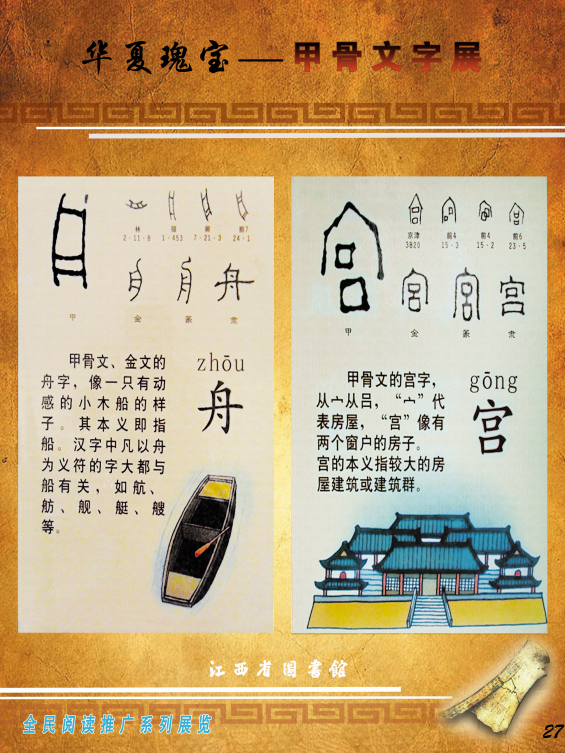 华夏瑰宝——甲骨文字展
林
2·11·8
1·453
7·21·3
前7
24·1
甲 金 篆 隶
甲骨文、金文的
舟字，像一只有动
感的小木船的样
子。其本义即指
船。汉字中凡以舟
为义符的字大都与
船有关，如航、
舫、舰、艇、艘
等。
zhōu
舟
京津
3820
前4
15·3
前4
15·2
前6
23·5
甲 金 篆 隶
甲骨文的宫字，
从宀从吕，“宀”代
表房屋，“宫”像有
两个窗户的房子。
宫的本义指较大的房
屋建筑或建筑群。
gōng
宫
江西省图書館
全民阅读推广系列展览
27